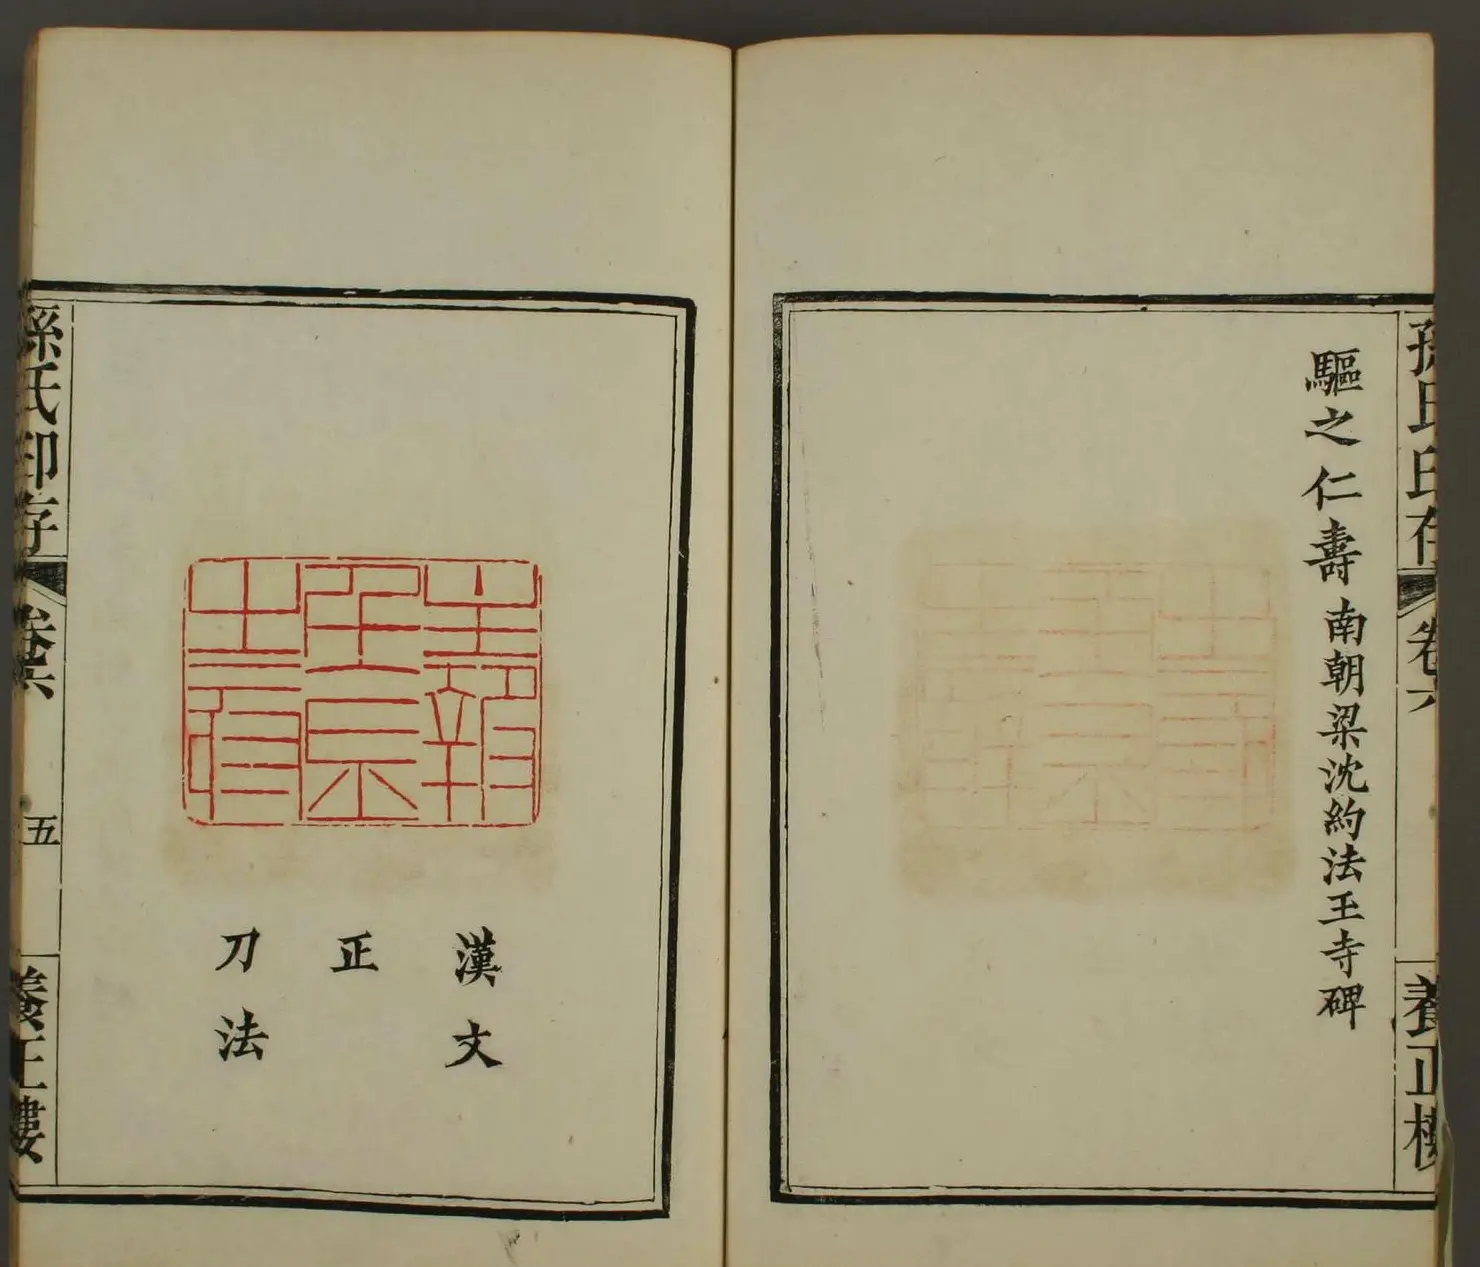 孫氏印存
卷六
養正樓
驅之仁壽 南朝梁沈約法王寺碑
漢文
正
刀法
孫氏印存
卷六
五
養正樓